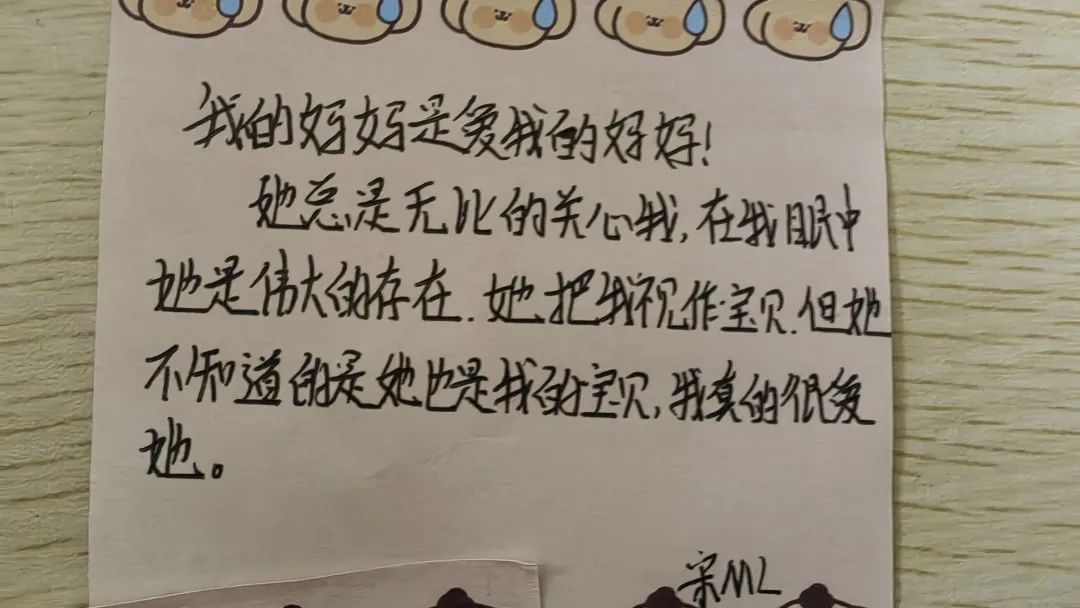 我的妈妈是爱我的妈妈!
她总是无比的关心我,在我眼中
她是伟大的存在.她把我视作宝贝.但她
不知道的是她也是我的宝贝,我真的很爱
她。
宋ML